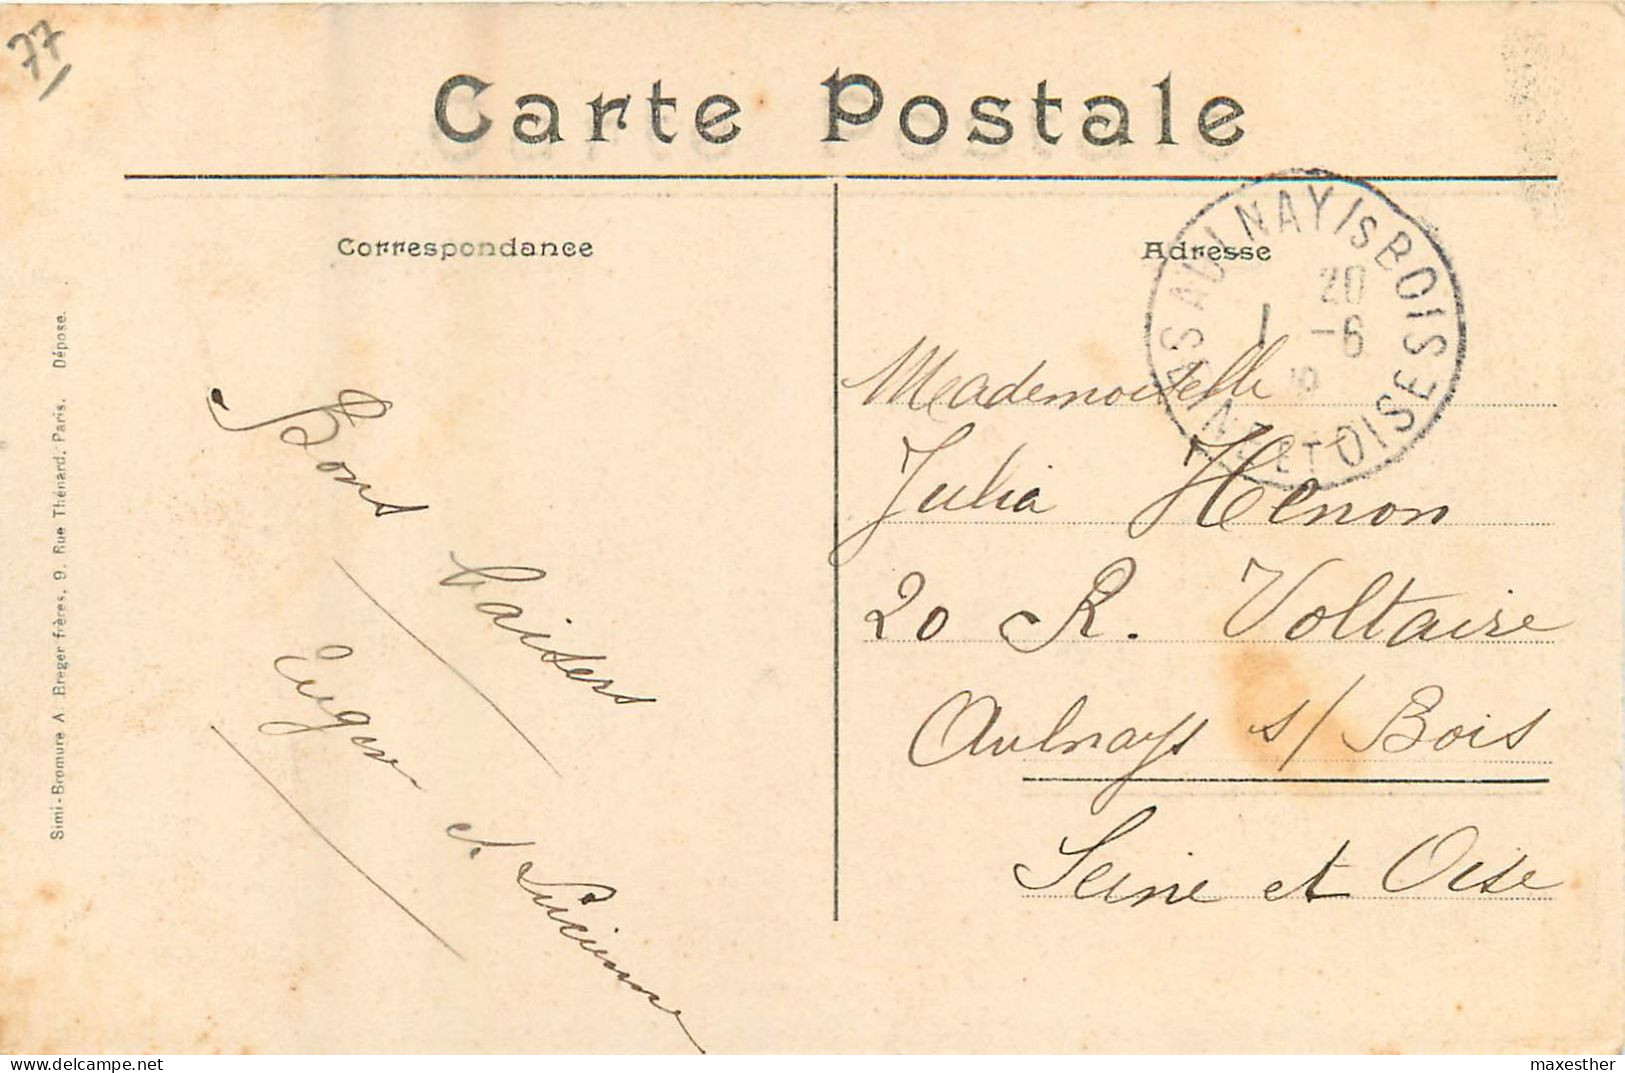 77
Carte Postale
Correspondance
Adresse
LES AULNAY IS BOIS
SEINE ET OISE
20
1 -6
Bons
baisers
Eugène
et Lucienne
Meademoiselle
Julia Henon
20 R. Voltaire
Aulnays s/ Bois
Seine et Oise
Simi-Bromure A. Breger frères, 9. Rue Thénard, Paris. Déposé.
delcampe.net
maxesther